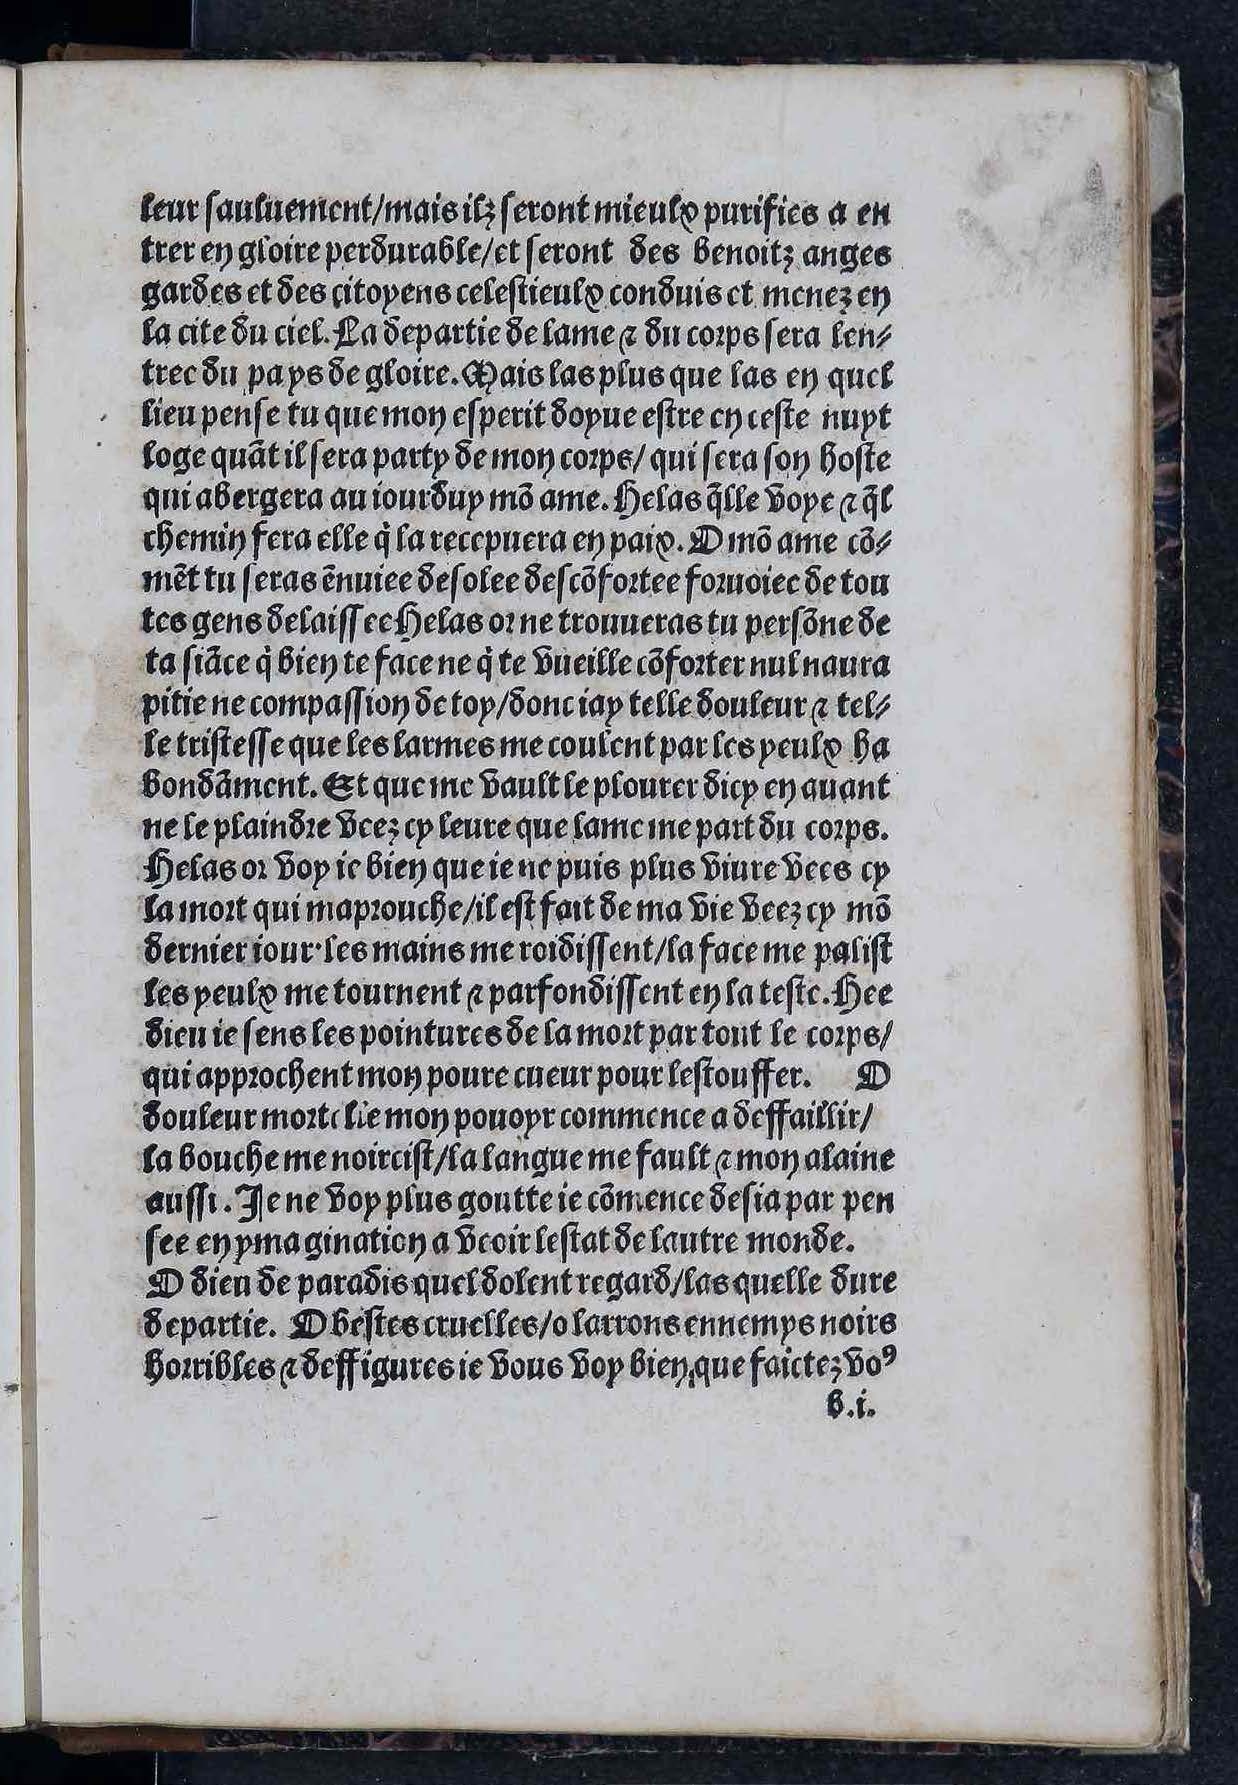 leur sauluement/mais ilz seront mieulx purifies a en
trer en gloire perdurable/et seront des benoitz anges
gardes et des citoyens celestieulx conduis et menez en
la cite du ciel. La departie de lame ⁊ du corps sera len⸗
tree du pays de gloire. Mais las plus que las en quel
lieu pense tu que mon esperit doyue estre en ceste nuyt
loge quāt il sera party de mon corps/ qui sera son hoste
qui abergera au iourduy mō ame. Helas q̄lle voye ⁊ q̄l
chemin fera elle q̇ la recepuera en paix. O mō ame cō⸗
mēt tu seras ēnuiee desolee descōfortee foruoiee de tou
tes gens delaissee Helas or ne trouueras tu persōne de
ta fiāce q̇ bien te face ne q̇ te vueille cōforter nul naura
pitie ne compassion de toy/donc iay telle douleur ⁊ tel⸗
le tristesse que les larmes me coulent par les yeulx ha
bondāment. Et que me vault le plourer dicy en auant
ne le plaindre veez cy leure que lame me part du corps.
Helas or voy ie bien que ie ne puis plus viure vees cy
la mort qui maprouche/il est fait de ma vie veez cy mō
dernier iour·les mains me roidissent/la face me palist
les yeulx me tournent ⁊ parfondissent en la teste. Hee
dieu ie sens les pointures de la mort par tout le corps/
qui approchent mon poure cueur pour lestouffer. O
douleur mortelle mon pouoyr commence a deffaillir/
la bouche me noircist/la langue me fault ⁊ mon alaine
aussi. Je ne voy plus goutte ie cōmence desia par pen
see en ymagination a veoir lestat de lautre monde.
O dieu de paradis quel dolent regard/las quelle dure
departie. O bestes cruelles/o larrons ennemys noirs
horribles ⁊ deffigures ie vous voy bien, que faictez voꝰ
b.i.